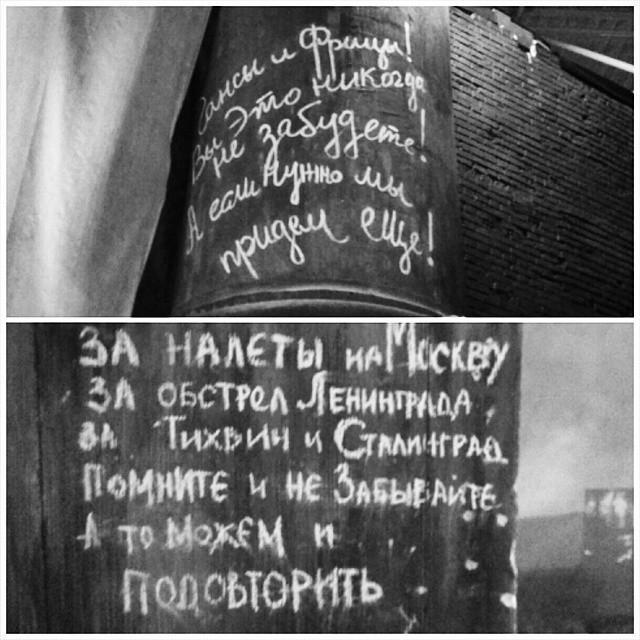 Гансы и фрицы!
Вы это никогда
не забудете!
А если нужно мы
придем еще!
ЗА НАЛЕТЫ НА МОСКВУ
ЗА ОБСТРЕЛ ЛЕНИНГРАДА,
ЗА ТИХВИН И СТАЛИНГРАД
ПОМНИТЕ И НЕ ЗАБЫВАЙТЕ
А ТО МОЖЕМ И
ПОДОВТОРИТЬ